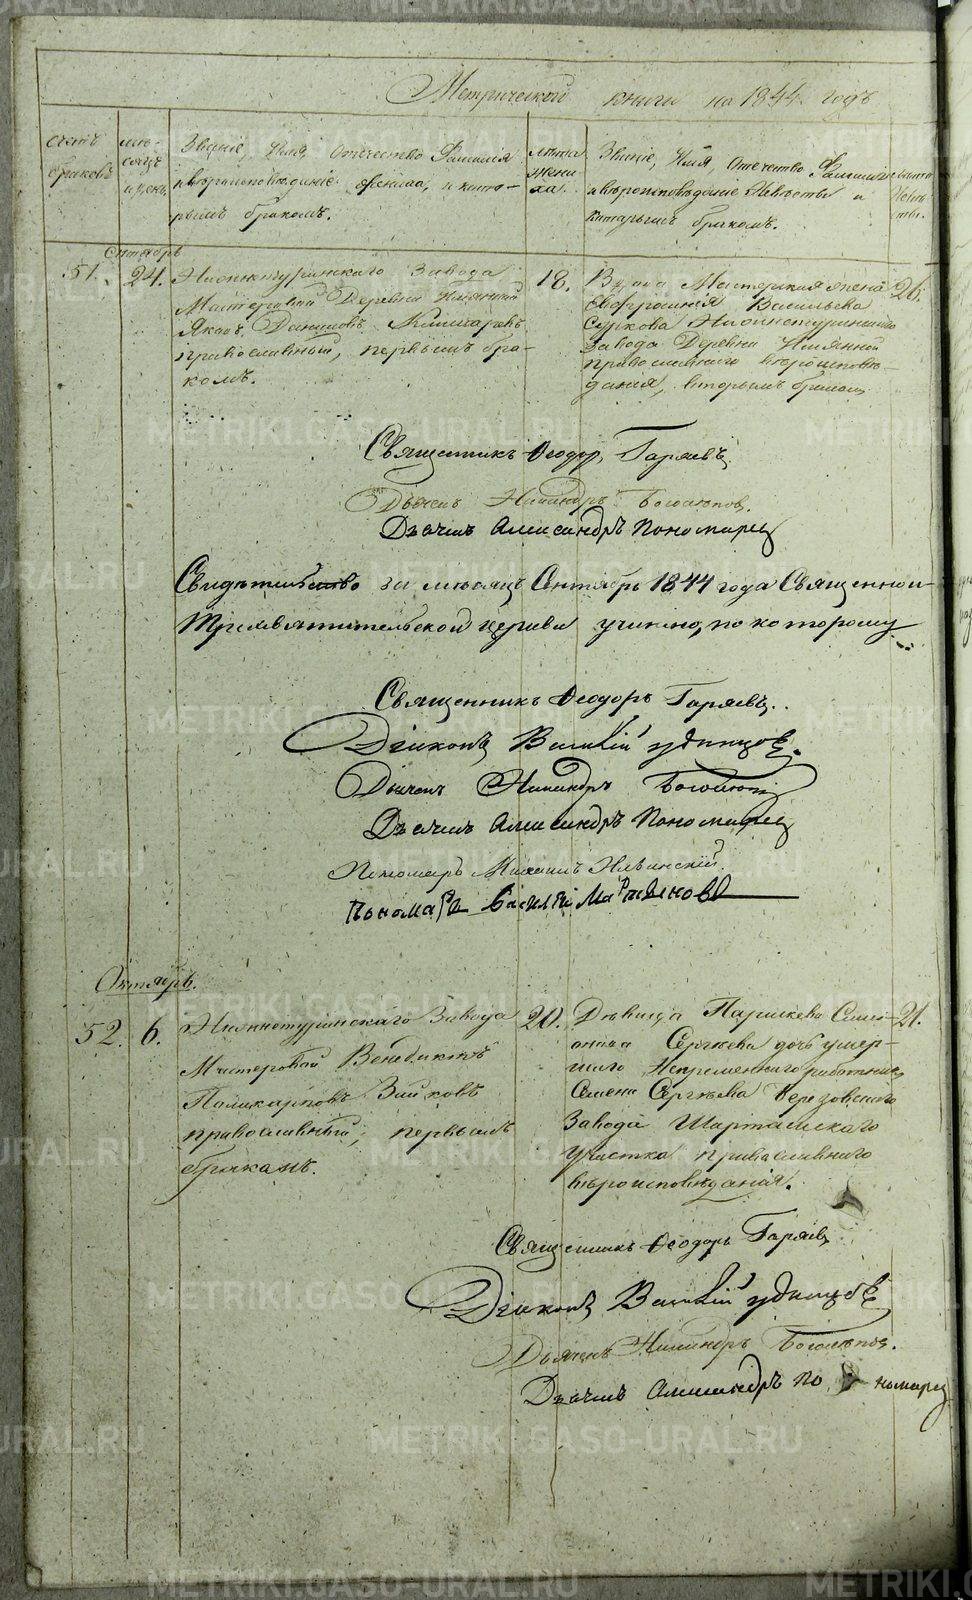 Метрической книги на 1844 годъ
счетъ браковъ
мѣсяцъ и день
Званіе, Имя, Отечество Фамилія
и вѣроисповѣданіе жениха, и кото-
рымъ бракомъ.
лѣта
жени
ха.
Званіе, Имя, Отечество Фамилія
и вѣроисповѣданіе Невѣсты и
которымъ бракомъ.
лѣта
Невѣ
сты.
Сентябрь
51. 24. Нижнетуринскаго Завода
Мастеровой Деревни Имянной
Яковъ Даниловъ
православный, первымъ бра-
комъ.
18.
Вдова Мастерская жена
Евфросинія Васильева
Суркова Нижнетуринскаго
Завода Деревни Имянной
православнаго вѣроисповѣ-
данія, вторымъ бракомъ
26.
Священникъ Ѳеодоръ Гаряевъ
Дьячекъ Никандръ Боголѣповъ.
Дьячекъ Александръ Пономарев
Свидѣтельство за мѣсяцъ Сентябрь 1844 года Священнои
Трисвятительской церкви учинено, по которому
Священникъ Ѳеодоръ Гаряевъ.
Діаконъ Василій Удинцовъ.
Дьячекъ Никандръ Боголѣпов
Дьячекъ Александръ Пономарев
Пономарь Михаилъ
Пономарь Василій Мартьяновъ
Октябрь.
52. 6. Нижнетуринскаго Завода
Мастеровой Венедиктъ
Поликарповъ Зайковъ
православный, первымъ
бракомъ.
20.
Дѣвица Параскева Семе-
онова Сергѣева дочь умер-
шаго Непременнаго работника
Семена Сергѣева Березовскаго
Завода Шарташскаго
участка православнаго
вѣроисповѣданія.
21.
Священникъ Ѳеодоръ Гаряевъ
Діаконъ Василій Удинцовъ
Дьячекъ Никандръ Боголѣповъ.
Дьячекъ Александръ Пономарев
METRIKI.GASO-URAL.RU